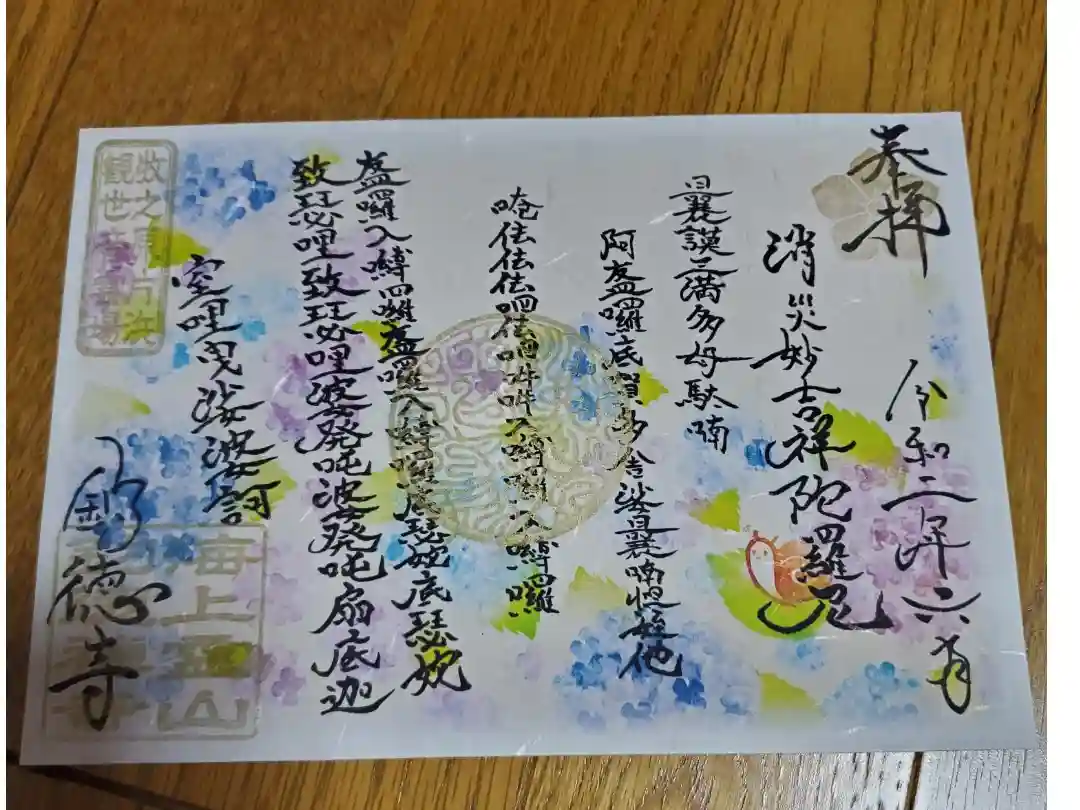 奉拝
令和二年六月
消災妙吉祥陀羅尼
曩謨三満多母駄喃
阿盋囉底賀多舎娑曩喃怛姪他
唵佉佉佉呬佉呬吽吽入嚩囉入嚩囉
盋囉入嚩囉盋囉入嚩囉底瑟姹底瑟姹
致瑟哩致瑟哩娑發吒娑發吒扇底迦
室哩曳娑婆訶
徳寺
観世音霊場
海上
山